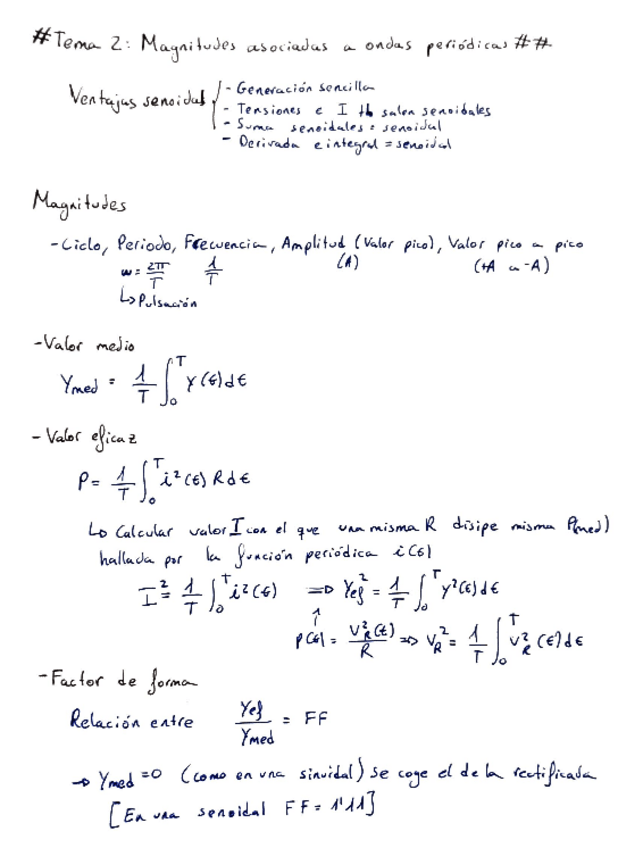 #Tema 2: Magnitudes asociadas a ondas periódicas ##
Ventajas senoidal
- Generación sencilla
- Tensiones e I tb salen senoidales
- Suma senoidales = senoidal
- Derivada e integral = senoidal
Magnitudes
- Ciclo, Periodo, Frecuencia, Amplitud (Valor pico), Valor pico a pico
ω = 2π/T 1/T (A) (+A a -A)
↳ Pulsación
- Valor medio
Ymed = 1/T ∫₀ᵀ y(t)dt
- Valor eficaz
P = 1/T ∫₀ᵀ i²(t) R dt
↳ Calcular valor I con el que una misma R disipe misma P(med)
hallada por la función periódica i(t)
I² = 1/T ∫₀ᵀ i²(t) ⇒ Yef² = 1/T ∫₀ᵀ y²(t)dt
↑
p(t) = V²R(t)/R ⇒ VR² = 1/T ∫₀ᵀ v²R(t)dt
- Factor de forma
Relación entre Yef/Ymed = FF
→ Ymed = 0 (como en una sinuidal) se coge el de la rectificada
[En una senoidal FF = 1'11]